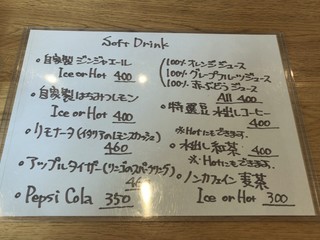 Soft Drink
• 自家製 ジンジャエール
Ice or Hot 400
• 自家製はちみつレモン
Ice or Hot 400
• リモナータ(イタリアのレモンスカッシュ)
460
• アップルタイザー(リンゴのスパークリング)
460
• Pepsi Cola 350
100% オレンジジュース
100% グレープフルーツジュース
100% 赤ぶどうジュース
All 400
• 特選豆 水出しコーヒー
400
※Hotにもできます。
• 水出し紅茶 400
※Hotにもできます。
• ノンカフェイン 麦茶
Ice or Hot 300